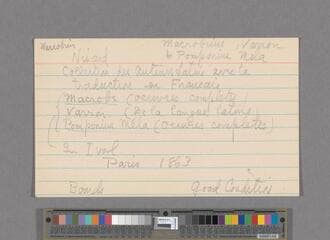 Macrobius, Varron
Nisard & Pomponius Mela
Collection des Auteurs latins avec la
traduction en Francais
Macrobe (oeuvres complètes)
Varron (De la langue latine)
Pomponius Mela (Oeuvres complètes)
In 1 vol.
Paris 1863
Boards Good Condition